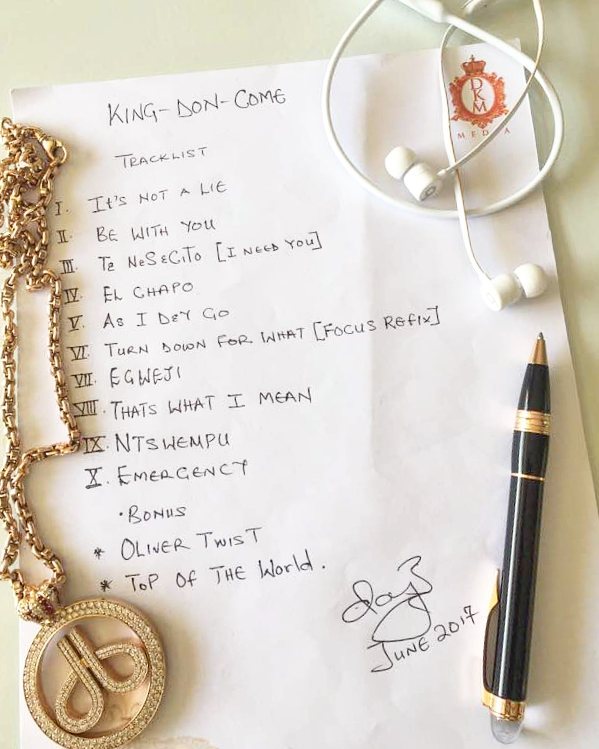 KING-DON-COME
DKM
MEDIA
TRACKLIST
I. IT'S NOT A LIE
II. BE WITH YOU
III. TE NESECITO [I NEED YOU]
IV. EL CHAPO
V. AS I DEY GO
VI. TURN DOWN FOR WHAT [FOCUS REFIX]
VII. EGWEJI
VIII. THATS WHAT I MEAN
IX. NTSWEMPU
X. EMERGENCY
• BONUS
* OLIVER TWIST
* TOP OF THE World.
JUNE 2017